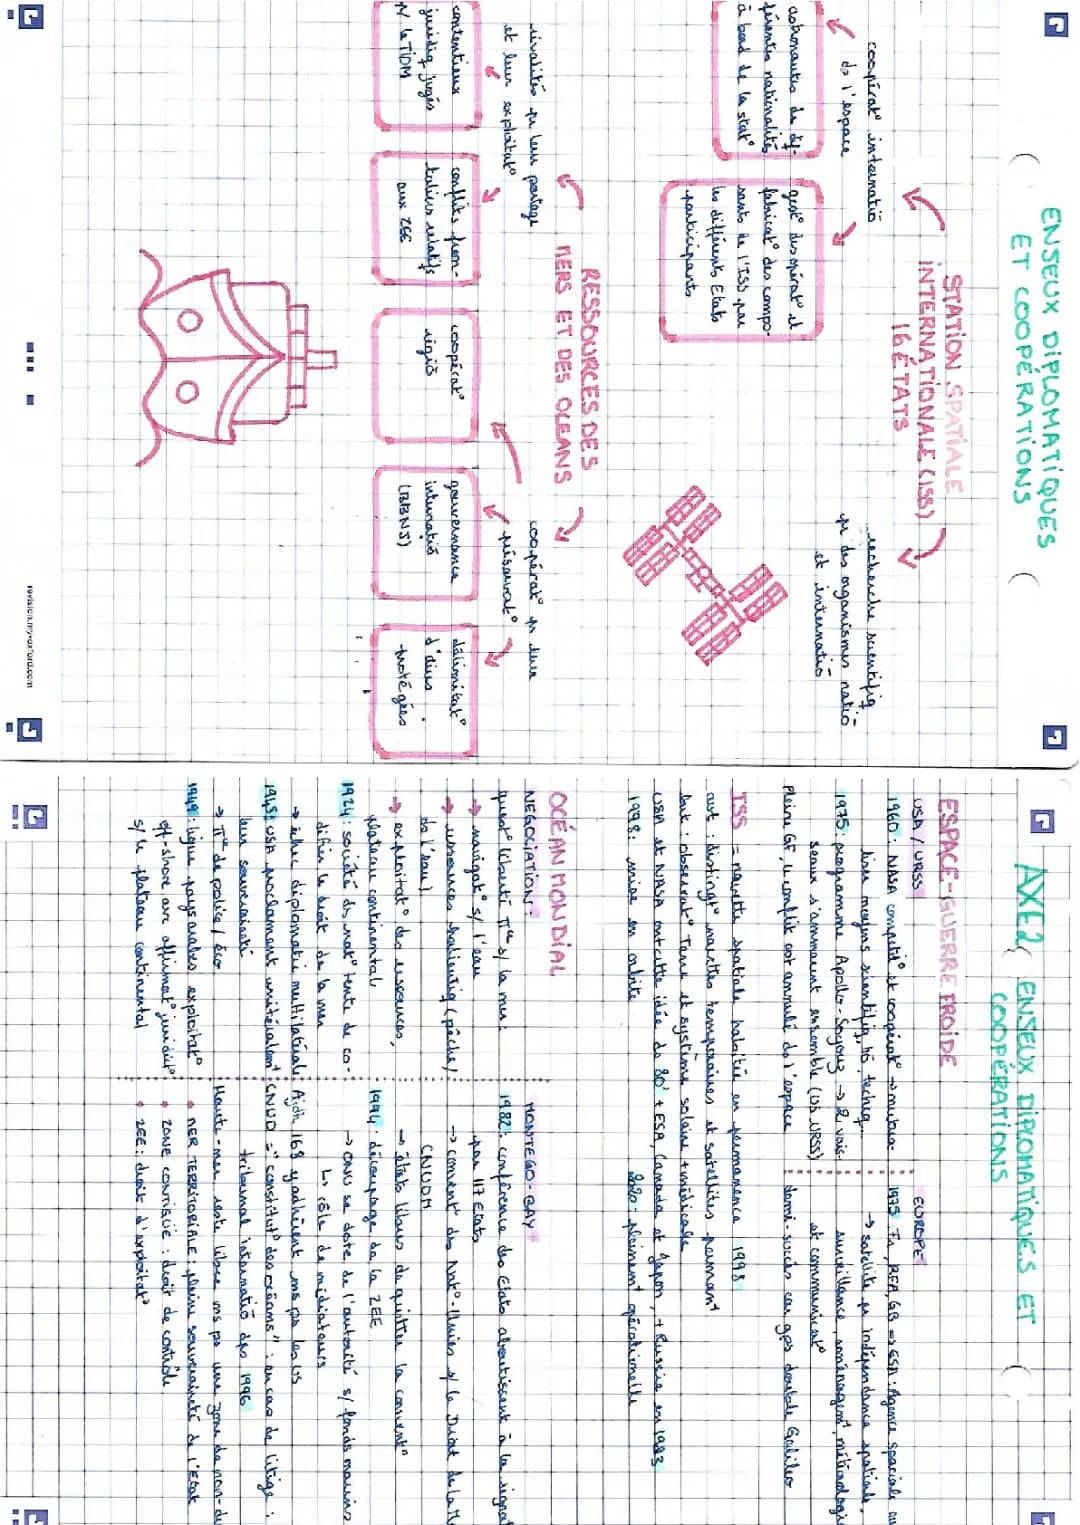 ENJEUX DIPLOMATIQUES
ET COOPÉRATIONS
STATION SPATIALE
INTERNATIONALE (ISS)
16 ÉTATS
coopérat° internatio
ds l'espace
recherche scientifiq
pr des organismes natio
et internatio
astronautes de dif-
férentes nationalités
à bord de la stat°
gest° des opérat° et
fabricat° des compo-
sants de l'ISS par
les différents Etats
participants
RESSOURCES DES
MERS ET DES OCÉANS
rivalités pr leur partage
et leur exploitat°
coopérat° pr leur
préservat°
contentieux
juridiq jugés
p/ le TIDM
conflits fron-
taliers relatifs
aux ZEE
coopérat°
régio
gouvernance
internatio
(BBNJ)
délimitat°
d'aires
protégées
revision.my-oxford.com
AXE 2, ENJEUX DIPLOMATIQUES ET
COOPÉRATIONS
ESPACE-GUERRE FROIDE
USA / URSS
1960: NASA compétit° et coopérat° → mutua-
liser moyens scientifiq, hô, techniq
1975: programme Apollo-Soyouz → 2 vais-
seaux s'arriment ensemble (US, URSS)
Pleine GF, le conflit est annulé ds l'espace
EUROPE
1975: Fr, RFA, GB => ESA: Agence spatiale eu
→ satellite pr indépendance spatiale,
surveillance, aménagemt, météorologi
et communicat°
demi-succès car gps double Galileo
ISS = navette spatiale habitée en permanence 1998
avt: distingt° navettes temporaires et satellites permant
but: observat° Terre et système solaire + médicale
USA et NASA ont cette idée ds 80' + ESA, Canada et Japon, + Russie en 1993
1998: mise en orbite 2020: pleinemt opérationnelle
OCÉAN MONDIAL
NÉGOCIATIONS:
quest° liberté Πque s/ la mer:
→ navigat° s/ l'eau
→ ressources halieutiq (pêche)
ds l'eau)
→ exploitat° des ressources,
plateau continental
1924: société ds nat° tente de co-
difier le droit de la mer
→ échec diplomatie multilatérale
1945: USA proclament unilatéralemt
leur souveraineté
→ Πque de police / éco
1949: ligue pays arabes exploitat°
off-shore avc affirmat° juridict°
s/ le plateau continental
MONTEGO-BAY
1982: conférence des Etats aboutissent à la signat
par 117 Etats
→ convent° des Nat°-Unies s/ le Droit de la M
CNUDM
→ états libres de quitter la convent°
1994: découpage de la ZEE
→ ONU se dote de l'autorité s/ fonds marins
↳ rôle de médiateurs
Ajdh, 168 y adhèrent ms pa les US
CNUD = "constitut° des océans": en cas de litige:
tribunal internatio dps 1996
Haute-mer reste libre ms pa une zone de non-d
• MER TERRITORIALE: pleine souveraineté de l'Etat
• ZONE CONTIGUË: droit de contrôle
• ZEE: droit d'exploitat°